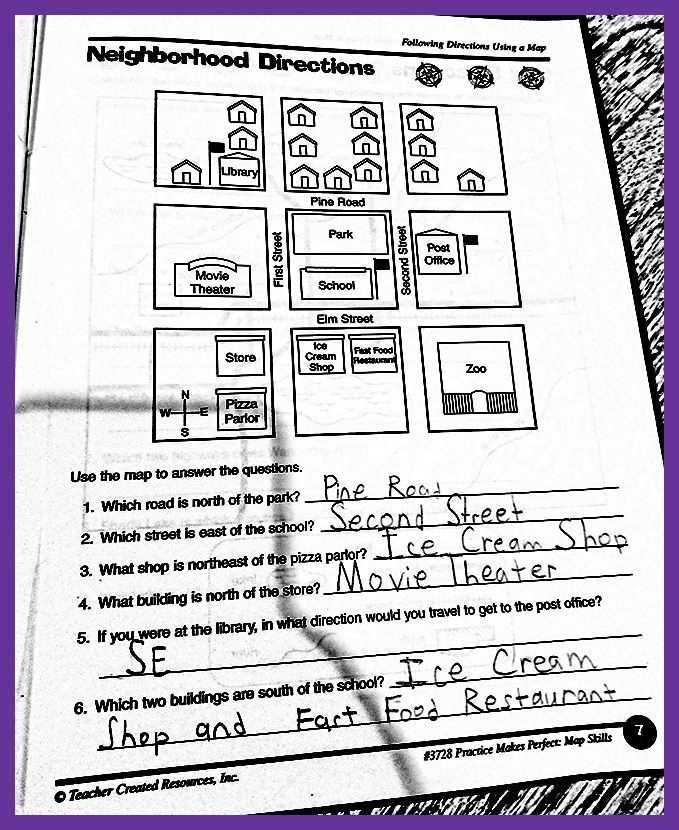 Following Directions Using a Map
Neighborhood Directions
Library
Pine Road
First Street
Park
Second Street
Post
Office
Movie
Theater
School
Elm Street
Store
Ice
Cream
Shop
Fast Food
Restaurant
Zoo
N
W E
S
Pizza
Parlor
Use the map to answer the questions.
1. Which road is north of the park? Pine Road
2. Which street is east of the school? Second Street
3. What shop is northeast of the pizza parlor? Ice Cream Shop
4. What building is north of the store? Movie Theater
5. If you were at the library, in what direction would you travel to get to the post office?
SE
6. Which two buildings are south of the school? Ice Cream
Shop and Fact Food Restaurant
© Teacher Created Resources, Inc.
#3728 Practice Makes Perfect: Map Skills
7